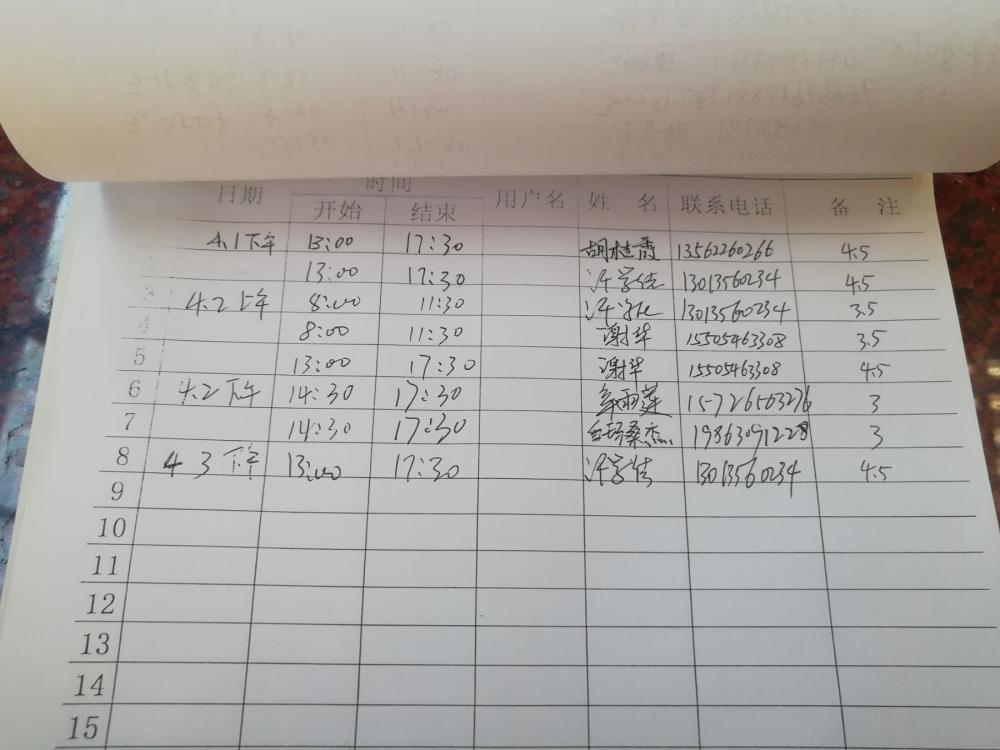 日期 时间 用户名 姓 名 联系电话 备 注
开始 结束
4.1下午 13:00 17:30 胡桂霞 13562260266 4.5
2 13:00 17:30 13013560234 4.5
3 4.2上午 8:00 11:30 13013560234 3.5
4 8:00 11:30 谢华 15505463308 3.5
5 13:00 17:30 谢华 15505463308 4.5
6 4.2下午 14:30 17:30 雨莲 15726563276 3
7 14:30 17:30 白玛桑杰 19863091228 3
8 4 3下午 13:00 17:30 13013560234 4.5
9
10
11
12
13
14
15